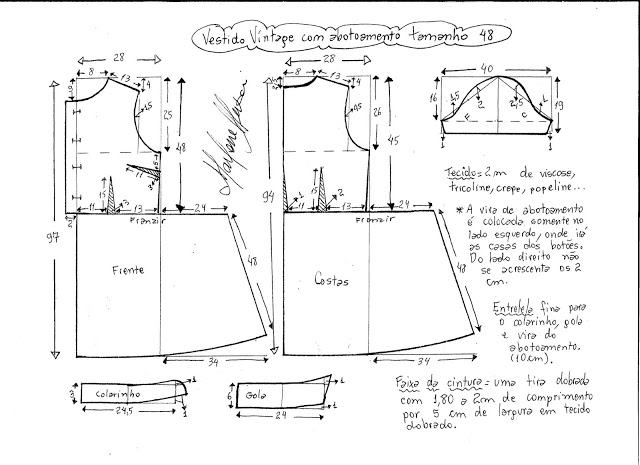 Vestido Vintage com abotoamento tamanho 48
28
8
13
4
25
48
11
15
3
11
13
24
2
Franzir
97
Frente
48
34
28
8
13
4
26
45
94
15
2
11
13
24
Franzir
Costas
48
34
40
16
1,5
2
2,5
1
19
F
C
1
1
Tecido = 2 m de viscose,
tricoline, crepe, popeline...
* A vira de abotoamento
é colocada somente no
lado esquerdo, onde irá
as casas dos botões.
Do lado direito não
se acrescenta os 2
cm.
Entretela fina para
o colarinho, gola
e vira do
abotoamento.
(10cm).
Faixa da cintura = uma tira dobrada
com 1,80 a 2m de comprimento
por 5 cm de largura em tecido
dobrado.
3
Colarinho
1
24,5
1
6
Gola
1
24
1